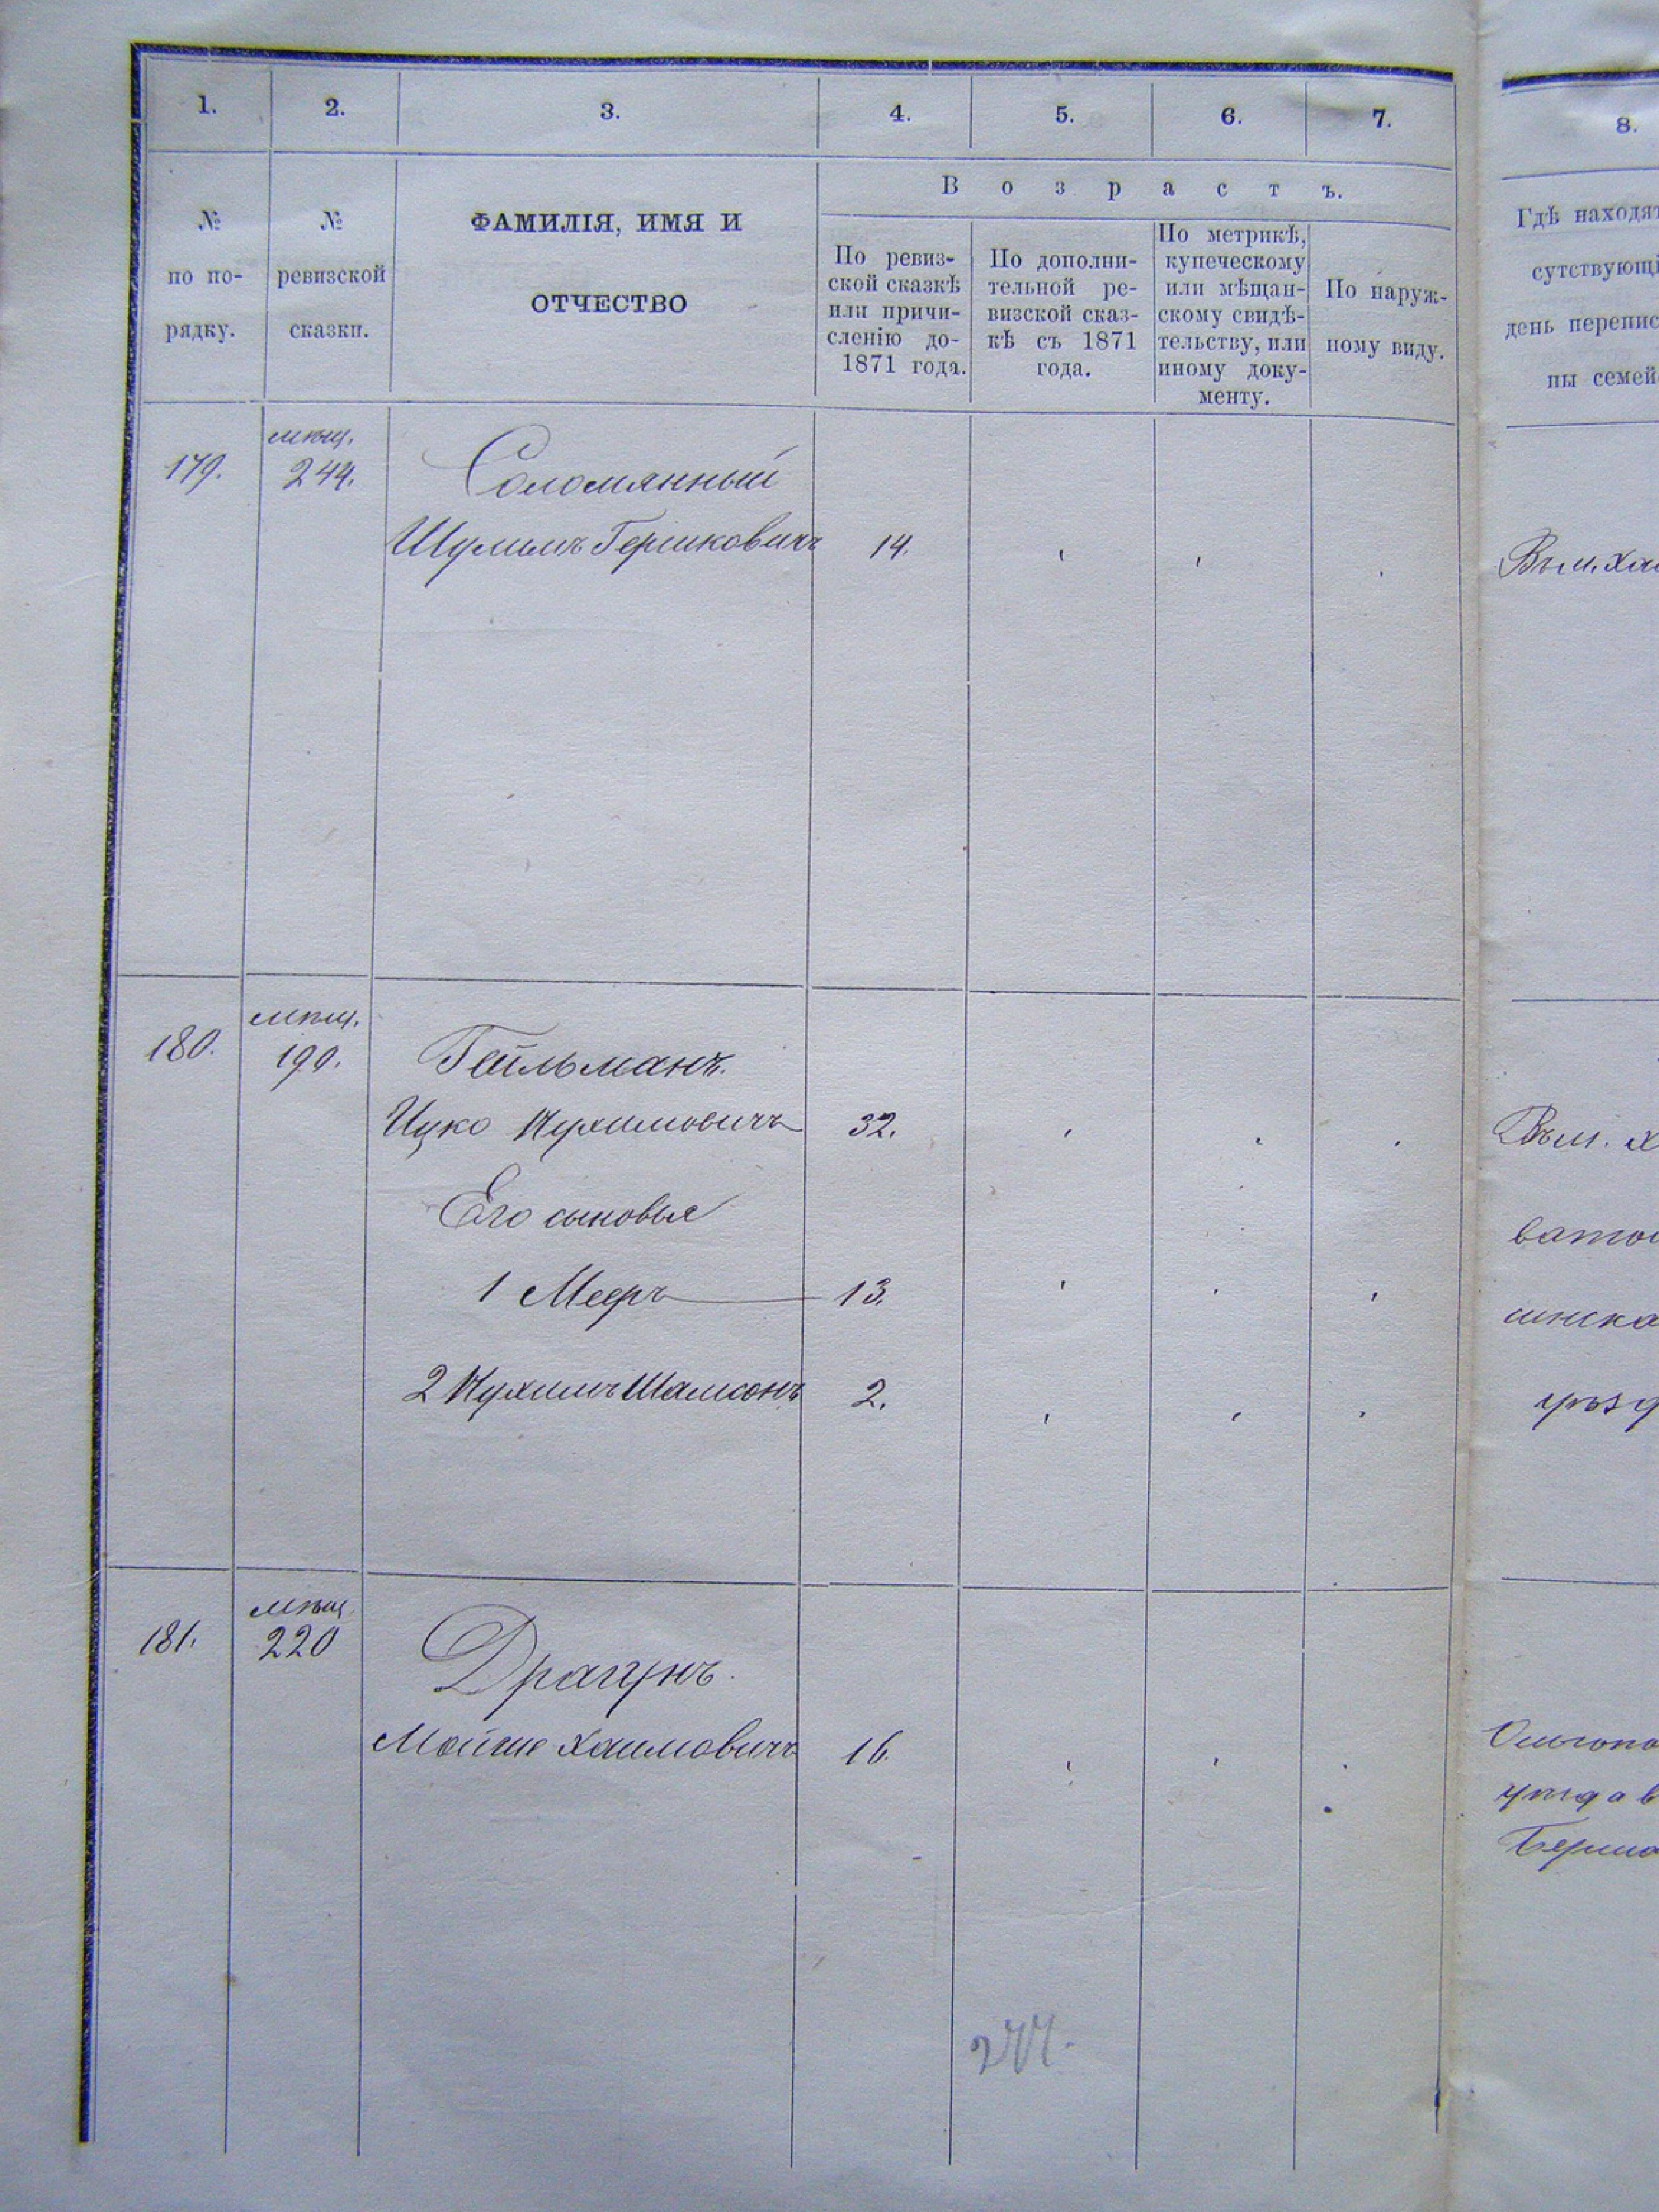 1. 2. 3. 4. 5. 6. 7. 8.
№ по по-рядку.
№ ревизской сказки.
ФАМИЛІЯ, ИМЯ И
ОТЧЕСТВО
Возрастъ.
По ревиз-
ской сказкѣ
или причи-
сленію до-
1871 года.
По дополни-
тельной ре-
визской сказ-
кѣ съ 1871
года.
По метрикѣ,
купеческому
или мѣщан-
скому свидѣ-
тельству, или
иному доку-
менту.
По наруж-
ному виду.
Гдѣ находят
сутствующі
день перепис
ны семей
179. мѣщ. 244. Соломянный
Шулимъ Гершковичъ 14.
Въ м. Ха
180. мѣщ. 190. Гейльманъ.
Ицко Нухимовичъ 32.
Въ м. Х
Его сыновья
1 Мееръ 13.
2 Нухимъ Шамсонъ 2.
уѣзд
181. мѣщ. 220 Драгунъ.
Мойше Хаимовичъ 16.
Ольгопо
уѣзда в
Берша